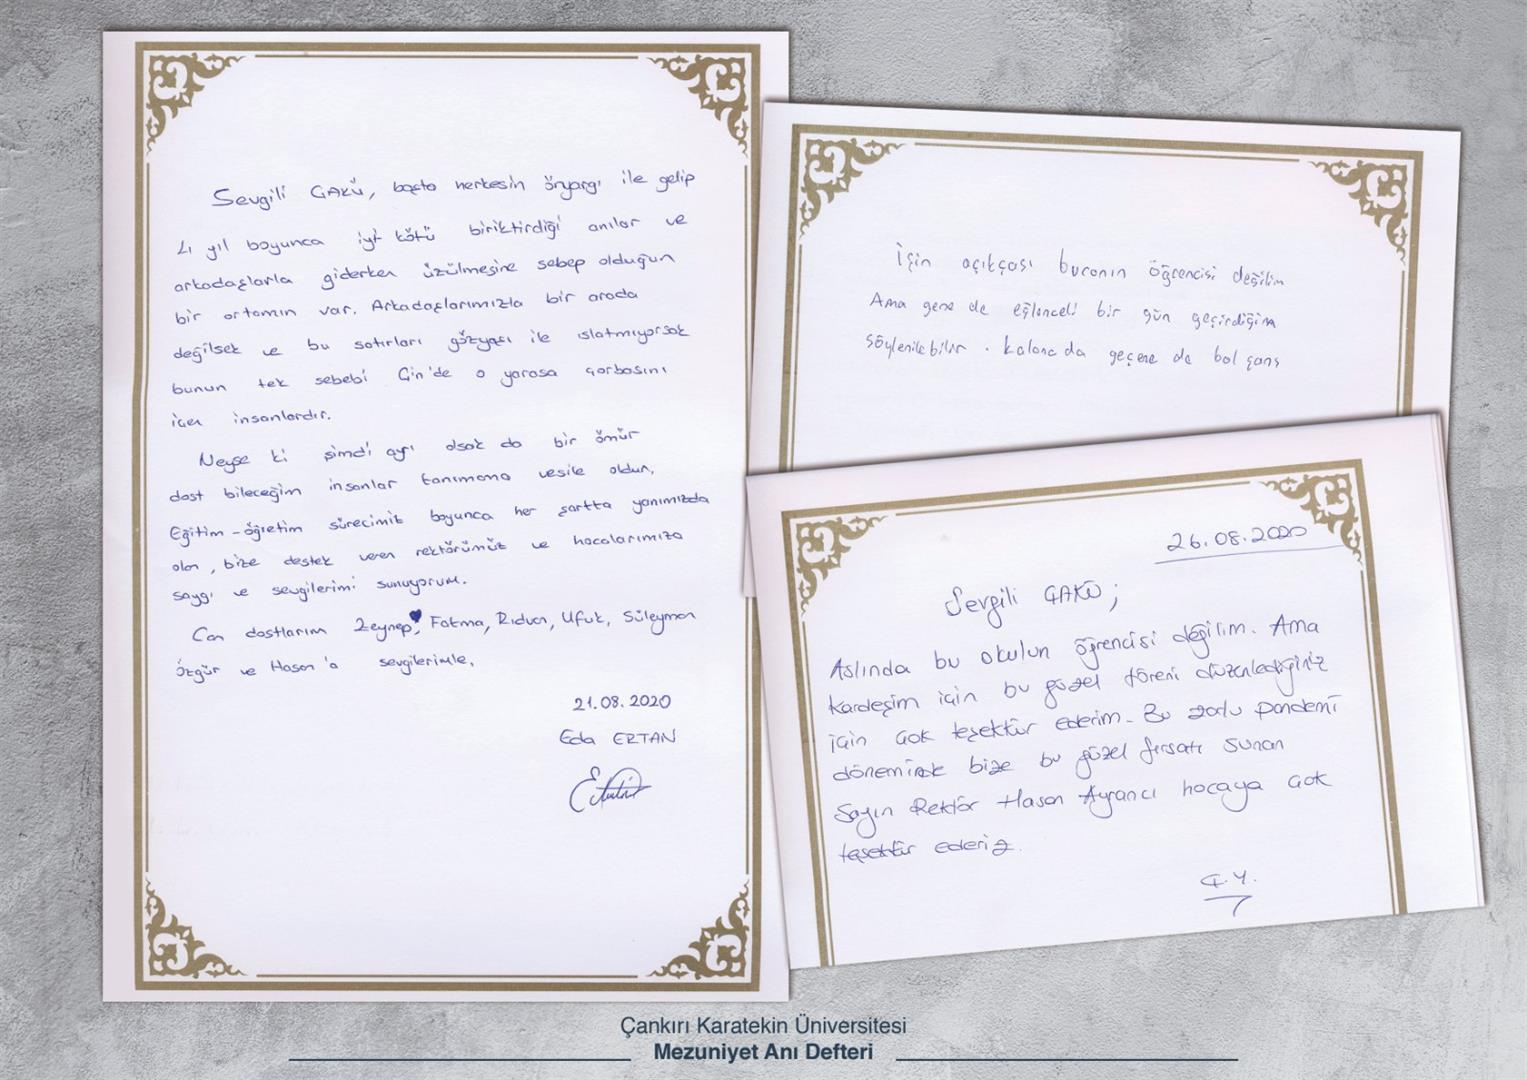 Sevgili ÇAKÜ, başta herkesin önyargı ile gelip
4 yıl boyunca iyi kötü biriktirdiği anılar ve
arkadaşlarla giderken üzülmesine sebep olduğun
bir ortamın var. Arkadaşlarımızla bir arada
değilsek ve bu satırları gözyaşı ile ıslatmıyorsak
bunun tek sebebi Çin'de o yarasa çorbasını
içen insanlardır.
Neyse ki şimdi ayrı olsak da bir ömür
dost bileceğim insanlar tanımama vesile oldun.
Eğitim-öğretim sürecimiz boyunca her şartta yanımızda
olan, bize destek veren rektörümüz ve hocalarımıza
saygı ve sevgilerimi sunuyorum.
Can dostlarım Zeynep, Fatma, Rıdvan, Ufuk, Süleyman
Özgür ve Hasan'a sevgilerimle,
21.08.2020
Eda ERTAN
İşin açıkçası buranın öğrencisi değilim
Ama gene de eğlenceli bir gün geçirdiğim
söylenilebilir. kalana da geçene de bol şans
26.08.2020
Sevgili ÇAKÜ;
Aslında bu okulun öğrencisi değilim. Ama
kardeşim için bu güzel töreni düzenlediğiniz
için çok teşekkür ederim. Bu zorlu pandemi
döneminde bize bu güzel fırsatı sunan
Sayın Rektör Hasan Ayrancı hocaya çok
teşekkür ederiz.
Ç.Y.
Çankırı Karatekin Üniversitesi
Mezuniyet Anı Defteri